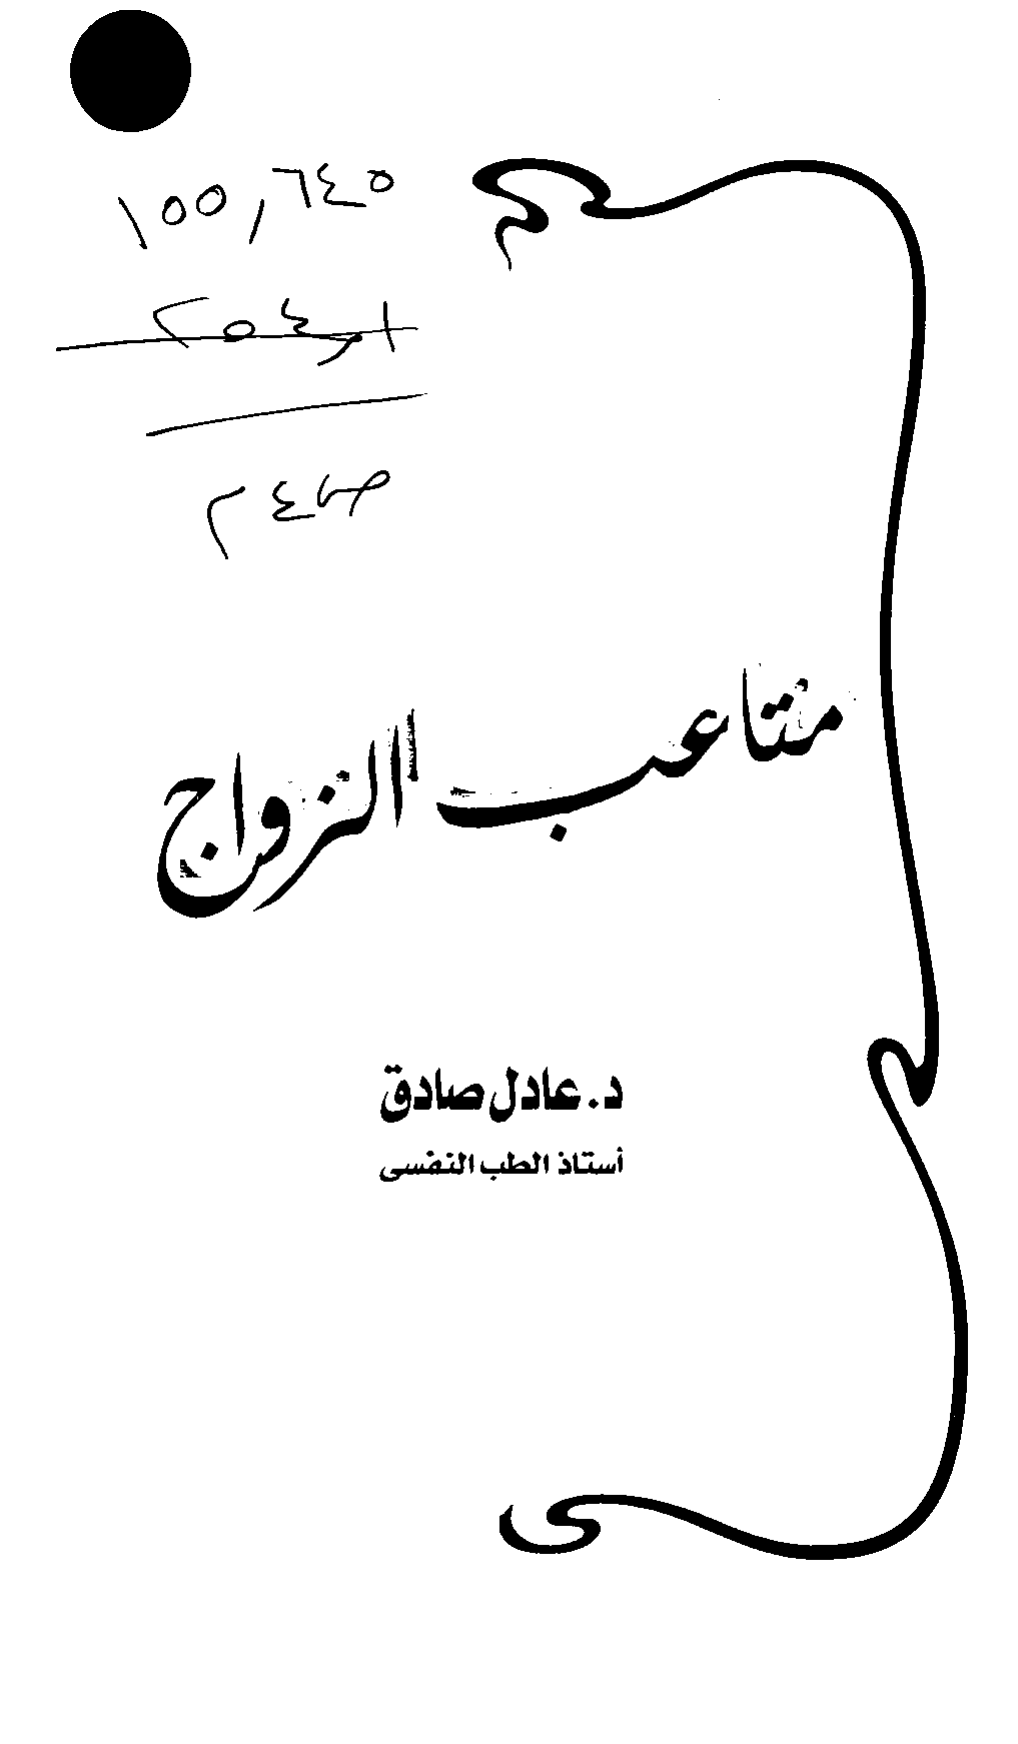 ١٥٥,٦٤٥
متاعب الزواج
د. عادل صادق
أستاذ الطب النفسى